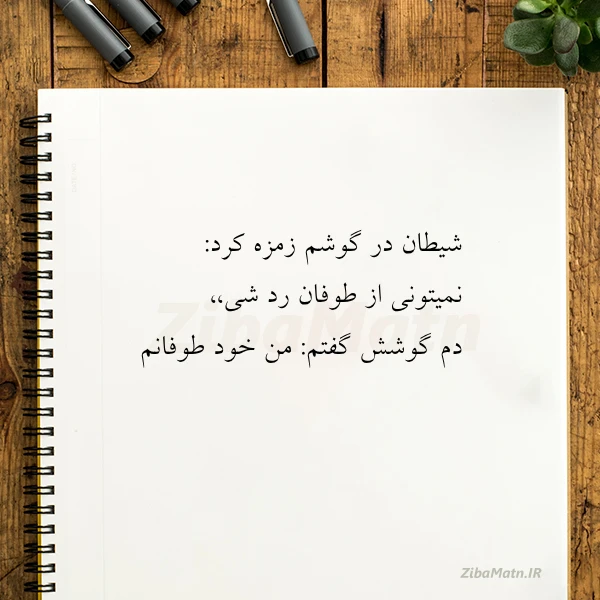 شیطان در گوشم زمزه کرد:
نمیتونی از طوفان رد شی،،
دم گوشش گفتم: من خود طوفانم
ZibaMatn
ZibaMatn.IR